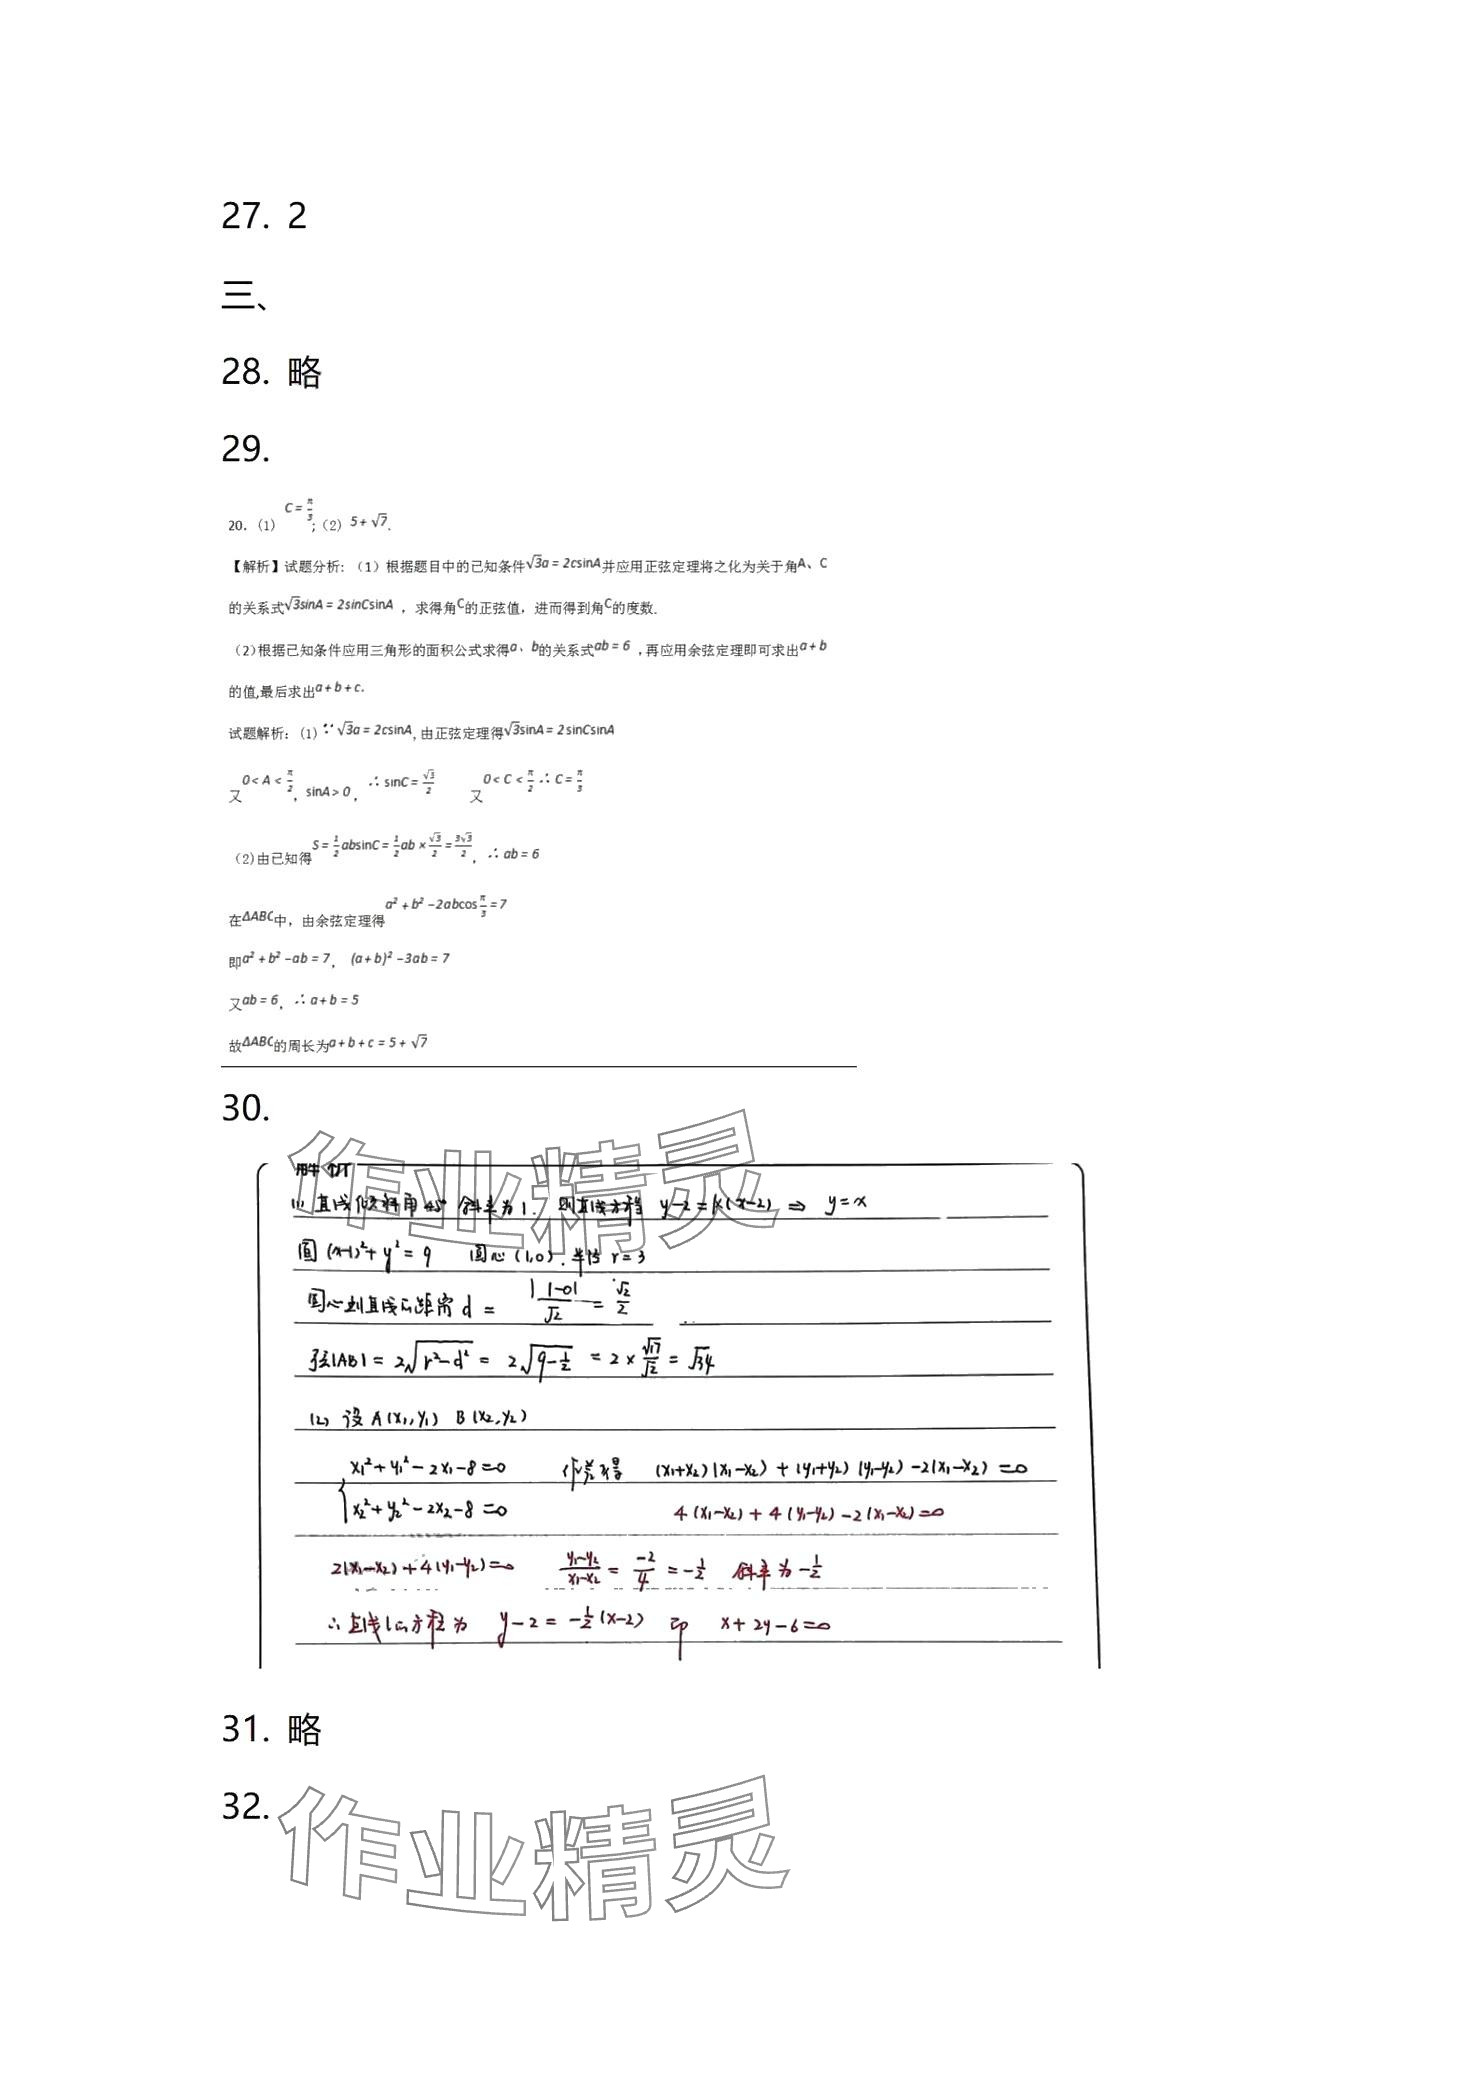 27. 2
三、
28. 略
29.
20. (1) C = π/3 ; (2) 5 + √7.
【解析】试题分析：（1）根据题目中的已知条件√3a = 2csinA并应用正弦定理将之化为关于角A、C
的关系式√3sinA = 2sinCsinA ，求得角C的正弦值，进而得到角C的度数.
（2)根据已知条件应用三角形的面积公式求得a、b的关系式ab = 6 ,再应用余弦定理即可求出a + b
的值,最后求出a + b + c.
试题解析：(1)∵ √3a = 2csinA, 由正弦定理得√3sinA = 2sinCsinA
又0 < A < π/2，sinA > 0，∴ sinC = √3/2 又0 < C < π/2 ∴ C = π/3
（2)由已知得S = 1/2 absinC = 1/2 ab × √3/2 = 3√3/2，∴ ab = 6
在ΔABC中，由余弦定理得a² + b² − 2abcos π/3 = 7
即a² + b² − ab = 7， (a + b)² − 3ab = 7
又ab = 6，∴ a + b = 5
故ΔABC的周长为a + b + c = 5 + √7
30.
(1) 直线倾斜角45° 斜率为1. 则直线方程 y−2=1×(x−2) ⇒ y=x
圆 (x−1)²+y²=9 圆心(1,0). 半径 r=3
圆心到直线的距离 d = |1−0|/√2 = √2/2
弦|AB| = 2√(r²−d²) = 2√(9−1/2) = 2×√17/√2 = √34
(2) 设A(x₁,y₁) B(x₂,y₂)
x₁²+y₁²−2x₁−8=0 作差得 (x₁+x₂)(x₁−x₂)+(y₁+y₂)(y₁−y₂)−2(x₁−x₂)=0
x₂²+y₂²−2x₂−8=0 4(x₁−x₂)+4(y₁−y₂)−2(x₁−x₂)=0
2(x₁−x₂)+4(y₁−y₂)=0 (y₁−y₂)/(x₁−x₂) = −2/4 = −1/2 斜率为−1/2
∴直线l的方程为 y−2=−1/2(x−2) 即 x+2y−6=0
作业精灵
31. 略
32.
作业精灵